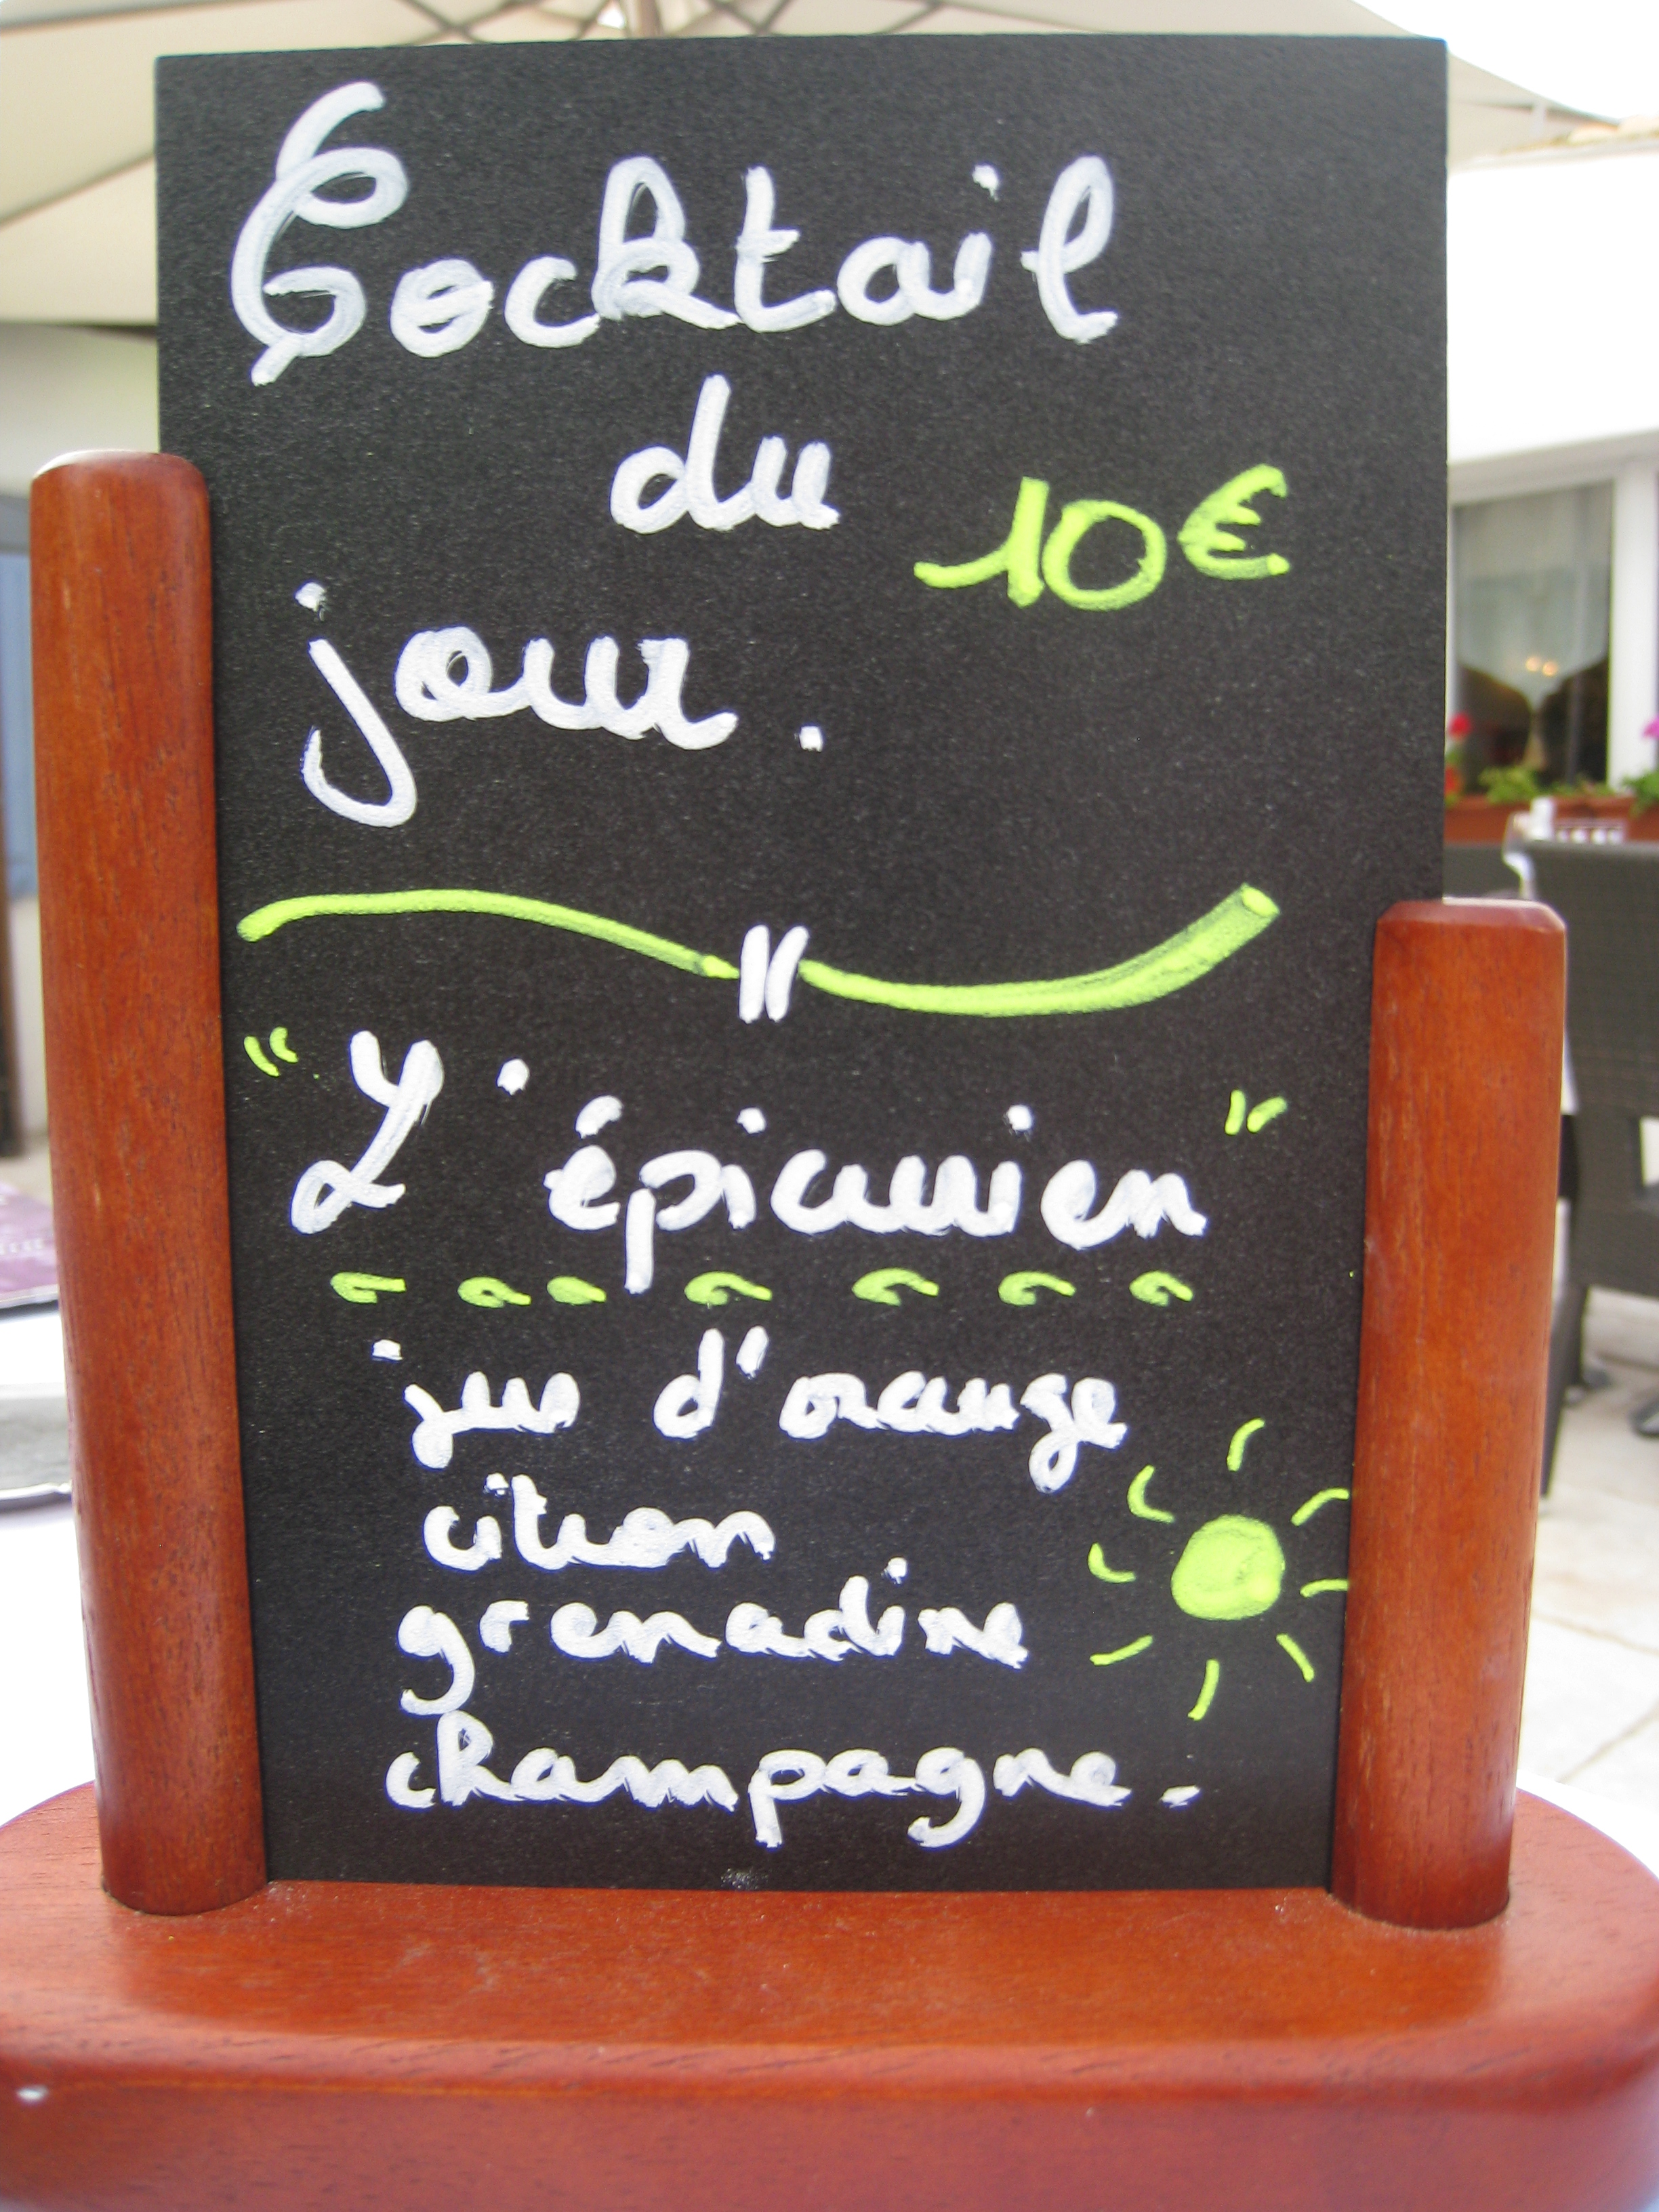 Cocktail
du
10€
jour.
"L'épicurien"
jus d'orange
citron
grenadine
champagne.